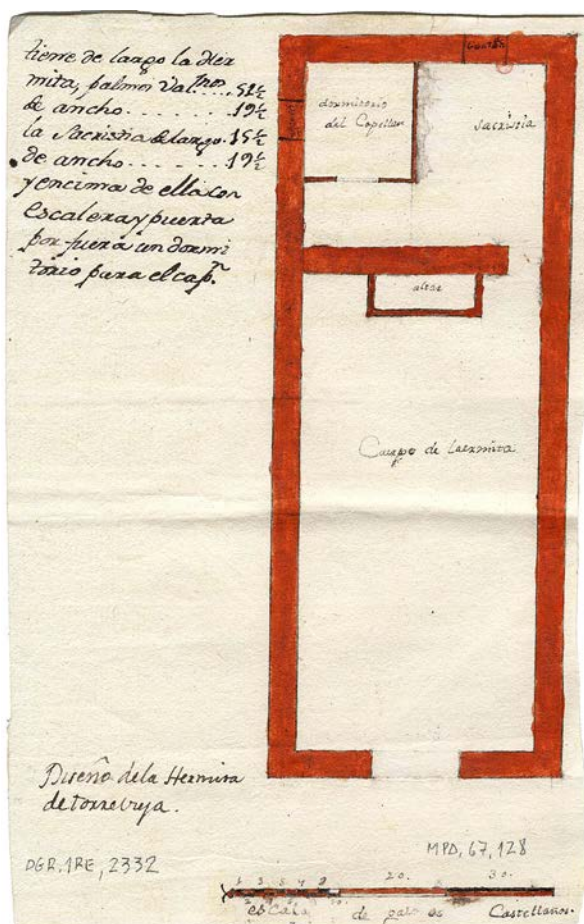 tiene de largo la Her
mita, palmos Val.tnos....51½
de ancho............19½
la Sacristia de largo..15½
de ancho........19½
y encima de ella con
escalera y puerta
por fuera un dormi
torio para el cap.n
dormitorio
del Capellan
sacristia
altar
Cuerpo de laermita
Diseño dela Hermita
de torrevieja.
DGR, 1RE, 2332
MPD, 67, 128
20. 30.
escala de palmos Castellanos.